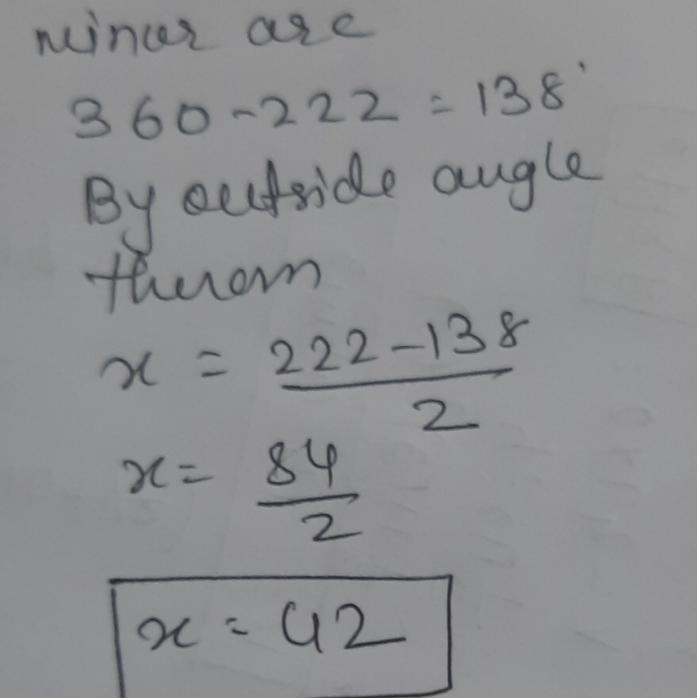 minor arc
360-222 = 138°
By outside angle
therom
x = 222-138
2
x = 84
2
x = 42